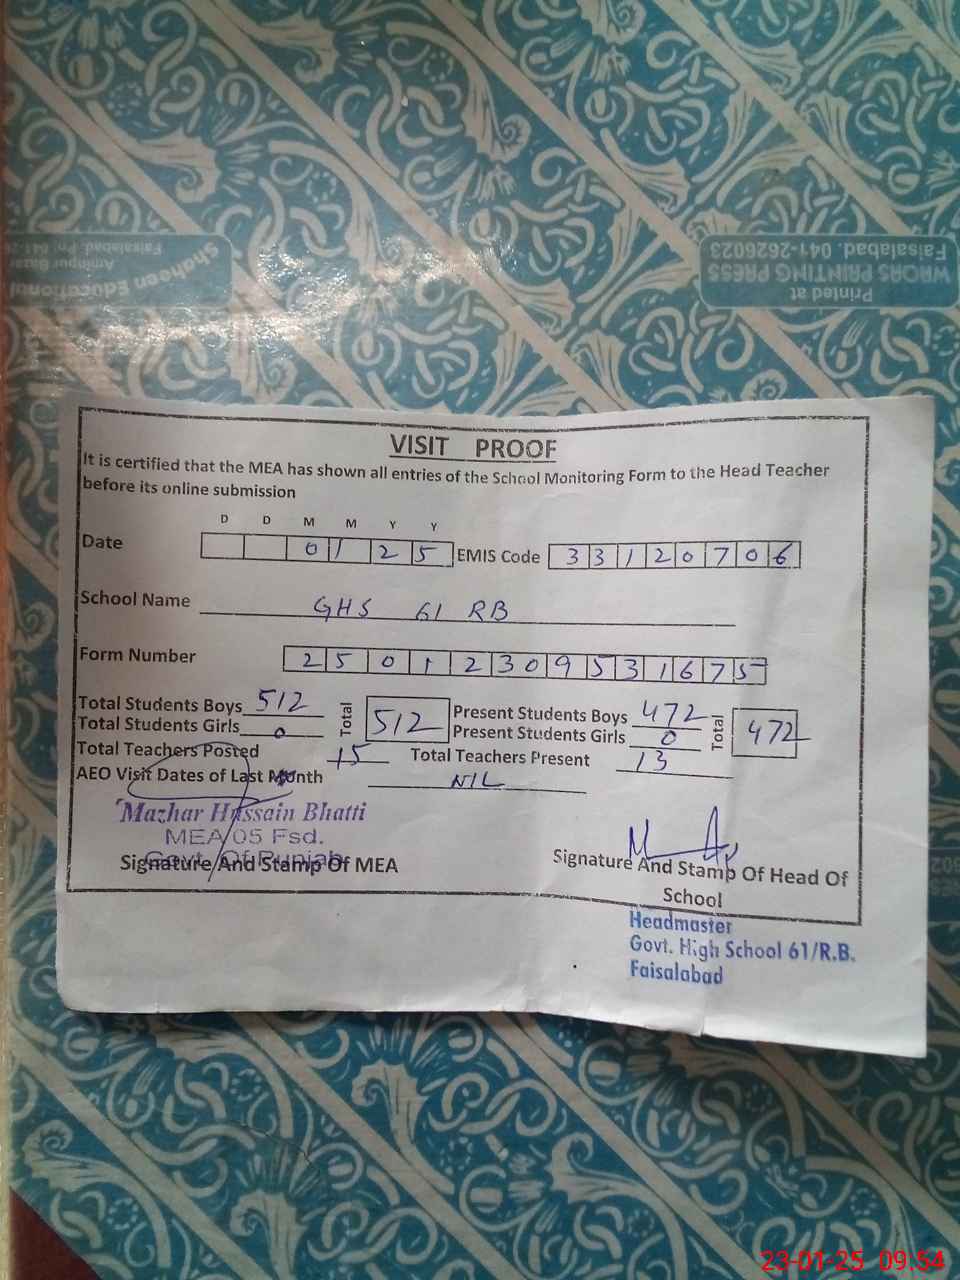 Printed at
WAQAS PRINTING PRESS
Faisalabad. 041-2626023
Shaheen Educational
Aminpur Bazar
Faisalabad. Ph: 041-26
VISIT PROOF
It is certified that the MEA has shown all entries of the School Monitoring Form to the Head Teacher
before its online submission
D D M M Y Y
Date 0 1 2 5 EMIS Code 3 3 1 2 0 7 0 6
School Name GHS 61 RB
Form Number 2 5 0 1 2 3 0 9 5 3 1 6 7 5
Total Students Boys 512 Total 512 Present Students Boys 472 Total 472
Total Students Girls 0 Present Students Girls 0
Total Teachers Posted 15 Total Teachers Present 13
AEO Visit Dates of Last Month NIL
Mazhar Hussain Bhatti
MEA/05 Fsd.
Govt. Of Punjab
Signature And Stamp Of MEA
Signature And Stamp Of Head Of
School
Headmaster
Govt. High School 61/R.B.
Faisalabad
23-01-25 09:54